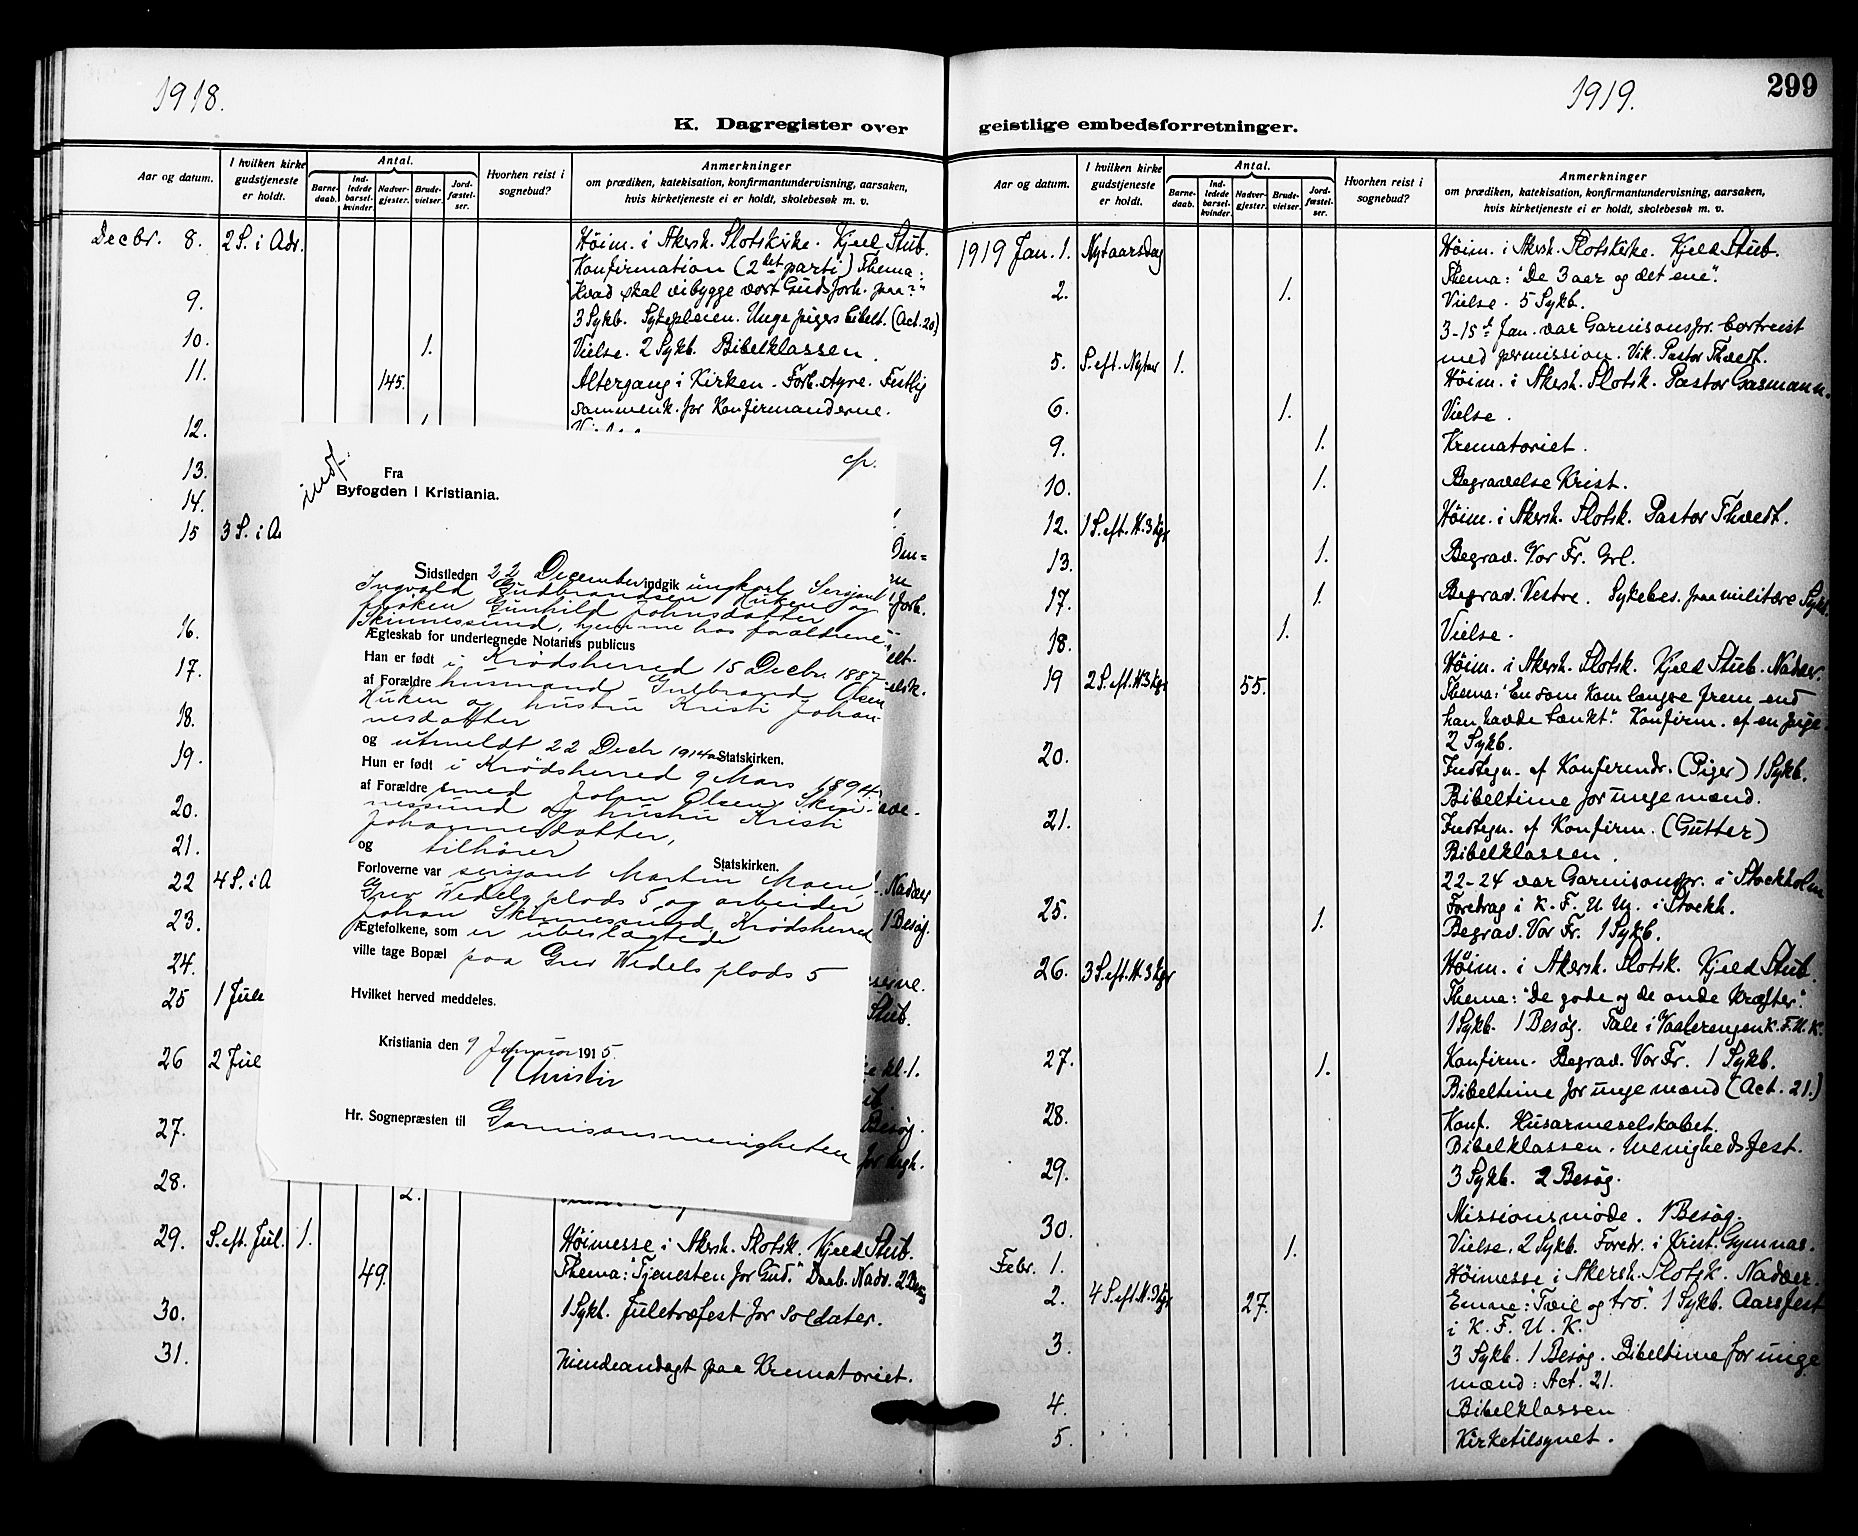 1918.
K. Dagregister over
Aar og datum.
I hvilken kirke gudstjeneste er holdt.
Antal.
Barne-daab.
Ind-ledede barsel-kvinder.
Nadver-gjester.
Brude-vielser.
Jord-fæstel-ser.
Hvorhen reist i sognebud?
Anmerkninger
om prædiken, katekisation, konfirmantundervisning, aarsaken,
hvis kirketjeneste ei er holdt, skolebesøk m. v.
Decbr. 8. 2 S. i Adv. Høim. i Akersh. Slotskirke. Kjeld Stub.
Konfirmation (2det parti) Thema:
"Hvad skal vi bygge vort Gudsforh. paa?"
9. 3 Sykb. Sykepleien. Unge pigers bibelt. (Act. 20)
10. 1. Vielse. 2 Sykb. Bibelklassen.
11. 145. Altergang i Kirken. Forb. styre. Festlig
sammenk. for Konfirmanderne.
12. 1.
13.
14.
15 3 S. i A
16.
17.
18.
19.
20.
21.
22 4 S. i A Nadver
23. 1 Besøg.
24.
25 1 Jule Stub.
26 2 Jul kl. 1.
27. Besøg.
28. 2.
29. S. eft. Jul. 1. Høimesse i Akersh. Slotsk. Kjeld Stub.
49. Thema: "Tjenesten for Gud." Daab. Nadv. 2 Besøg
30. 1 Sykb. Juletræfest for soldater.
31. Mindeandagt paa Krematoriet.
indf.
Fra
Byfogden i Kristiania.
Sidstleden 22 December indgik ungkarl Sersjant
Ingvald Gudbrandsen Huken og
frøken Gunhild Johnsdatter
Skinnessund, hjemme hos forældrene
Ægteskab for undertegnede Notarius publicus
Han er født i Krødsherred 15 Decbr. 1887
af Forældre husmand Gulbrand Olsen
Huken og hustru Kristi Johan-
nesdatter
og utmeldt 22 Decbr 1914 av Statskirken.
Hun er født i Krødsherred 9 Mars 1894.
af Forældre smed John Olsen Skin-
nessund og hustru Kristi
Johannesdatter,
og tilhører Statskirken.
Forloverne var sersjant Martin Moen,
Grev Wedels plads 5, og arbeider
Johan Skinnessund, Krødsherred
Ægtefolkene, som er ubeslægtede
ville tage Bopæl paa Grev Wedels plads 5
Hvilket herved meddeles.
Kristiania den 9 Januar 1915.
Hr. Sognepræsten til Garnisonsmenigheten
1919.
299
geistlige embedsforretninger.
Aar og datum.
I hvilken kirke gudstjeneste er holdt.
Antal.
Barne-daab.
Ind-ledede barsel-kvinder.
Nadver-gjester.
Brude-vielser.
Jord-fæstel-ser.
Hvorhen reist i sognebud?
Anmerkninger
om prædiken, katekisation, konfirmantundervisning, aarsaken,
hvis kirketjeneste ei er holdt, skolebesøk m. v.
1919 Jan. 1. Nytaarsdag Høim. i Akersh. Slotskirke. Kjeld Stub.
Thema: "De 3 aar og det ene".
2. 1. Vielse. 5 Sykb.
3-15de Jan. var Garnisonspr. bortreist
med permission. Vik. Pastor Thvedt.
5. S. eft. Nytaar 1. Høim. i Akersh. Slotsk. Pastor Gasmann.
6. 1. Vielse.
9. 1. Krematoriet.
10. 1. Begravelse Krist.
12. 1 S. eft. H. 3 kgr Høim. i Akersh. Slotsk. Pastor Thvedt.
13. 1. Begrav. Vor Fr. Grl.
17. 1. Begrav. Vestre. Sykebes. paa militære Sykh.
18. 1. Vielse.
19 2 S. eft. H. 3 kgr 55. Høim. i Akersh. Slotsk. Kjeld Stub. Nadver.
Thema: "En som kom længre frem end
han havde tænkt". Konfirm. af en pige.
2 Sykb.
20. Indtegn. af Konfirmdr. (Piger) 1 Sykb.
Bibeltime for unge mænd.
21. Indtegn. af Konfirm. (Gutter)
Bibelklassen.
22-24 var Garnisonspr. i Stockholm
Foredrag i K. F. U. M. i Stockh.
25. 1. Begrav. Vor Fr. 1 Sykb.
26. 3 S. eft. H. 3 kgr Høim. i Akersh. Slotsk. Kjeld Stub
Thema: "De gode og de onde kræfter".
1 Sykb. 1 Besøg. Tale i Vaalerengen K. F. U. K.
27. 1. Konfirm. Begrav. Vor Fr. 1 Sykb.
Bibeltime for unge mænd (Act. 21.)
28. Konf. Husarmeselskabet.
Bibelklassen. Menighedsfest.
29. 3 Sykb. 2 Besøg.
30. Missionsmøde. 1 Besøg.
Febr. 1. 1. Vielse. 2 Sykb. Foredr. i Krist. Gymnas.
2. 4 S. eft. H. 3 kgr 27. Høimesse i Akersh. Slotsk. Nadver.
Emne: "Tvil og tro". 1 Sykb. Aarsfest
i K. F. U. K.
3. 3 Sykb. 1 Besøg. Bibeltime for unge
mænd: Act. 21.
4. Bibelklassen
5. Kirketilsynet.